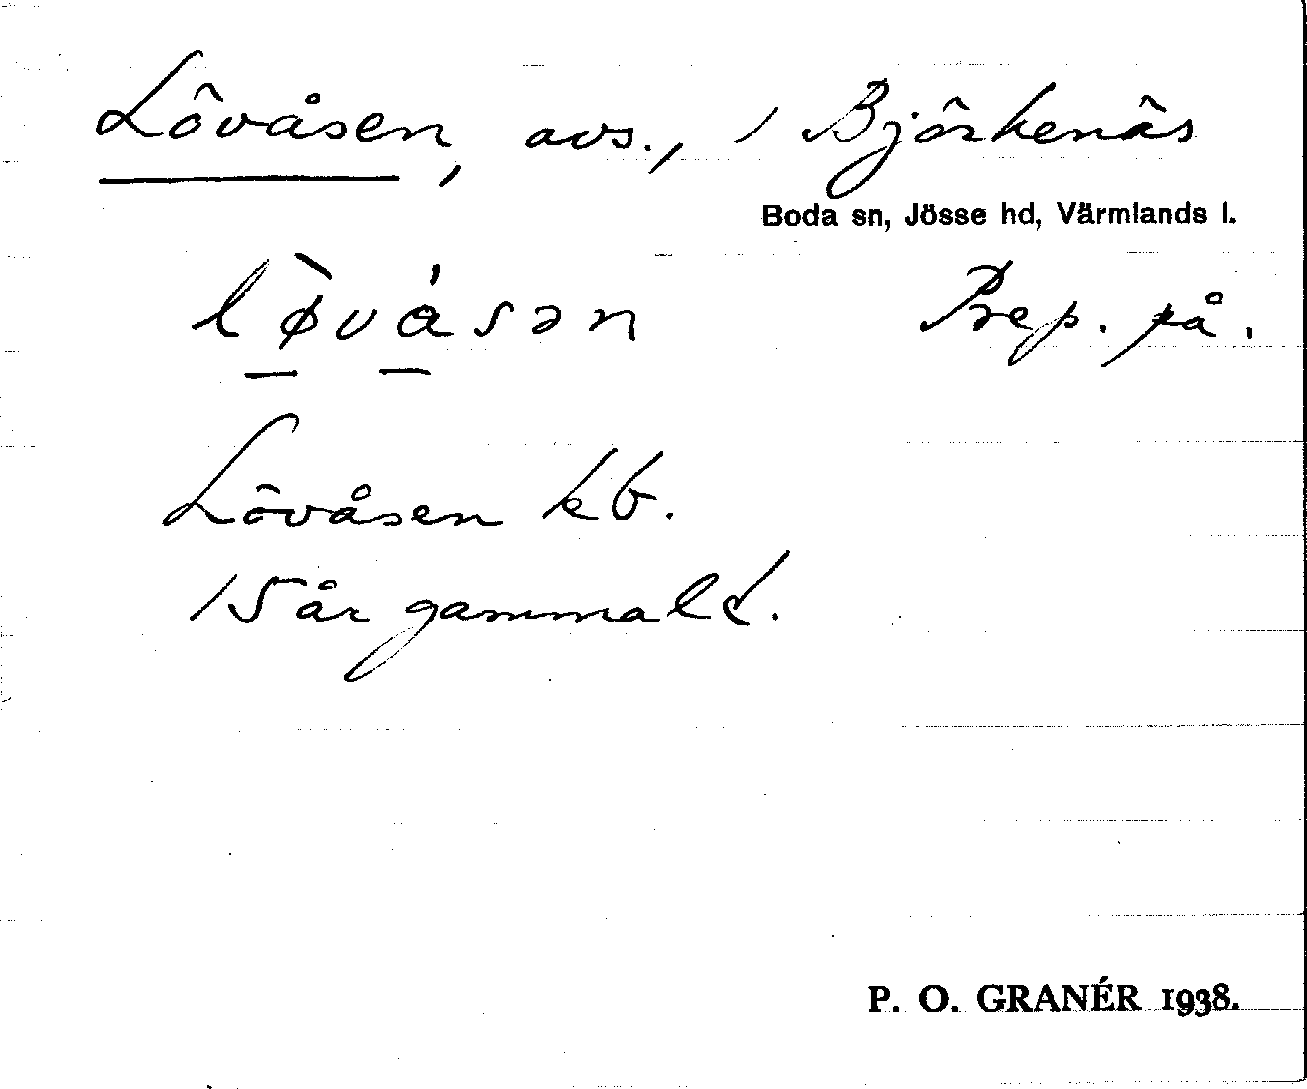 Lövåsen, avs., / Björkenäs
Boda sn, Jösse hd, Värmlands l.
lø̀vásən Prep. på.
Lövåsen kb.
15 år gammalt.
P. O. GRANÉR 1938.